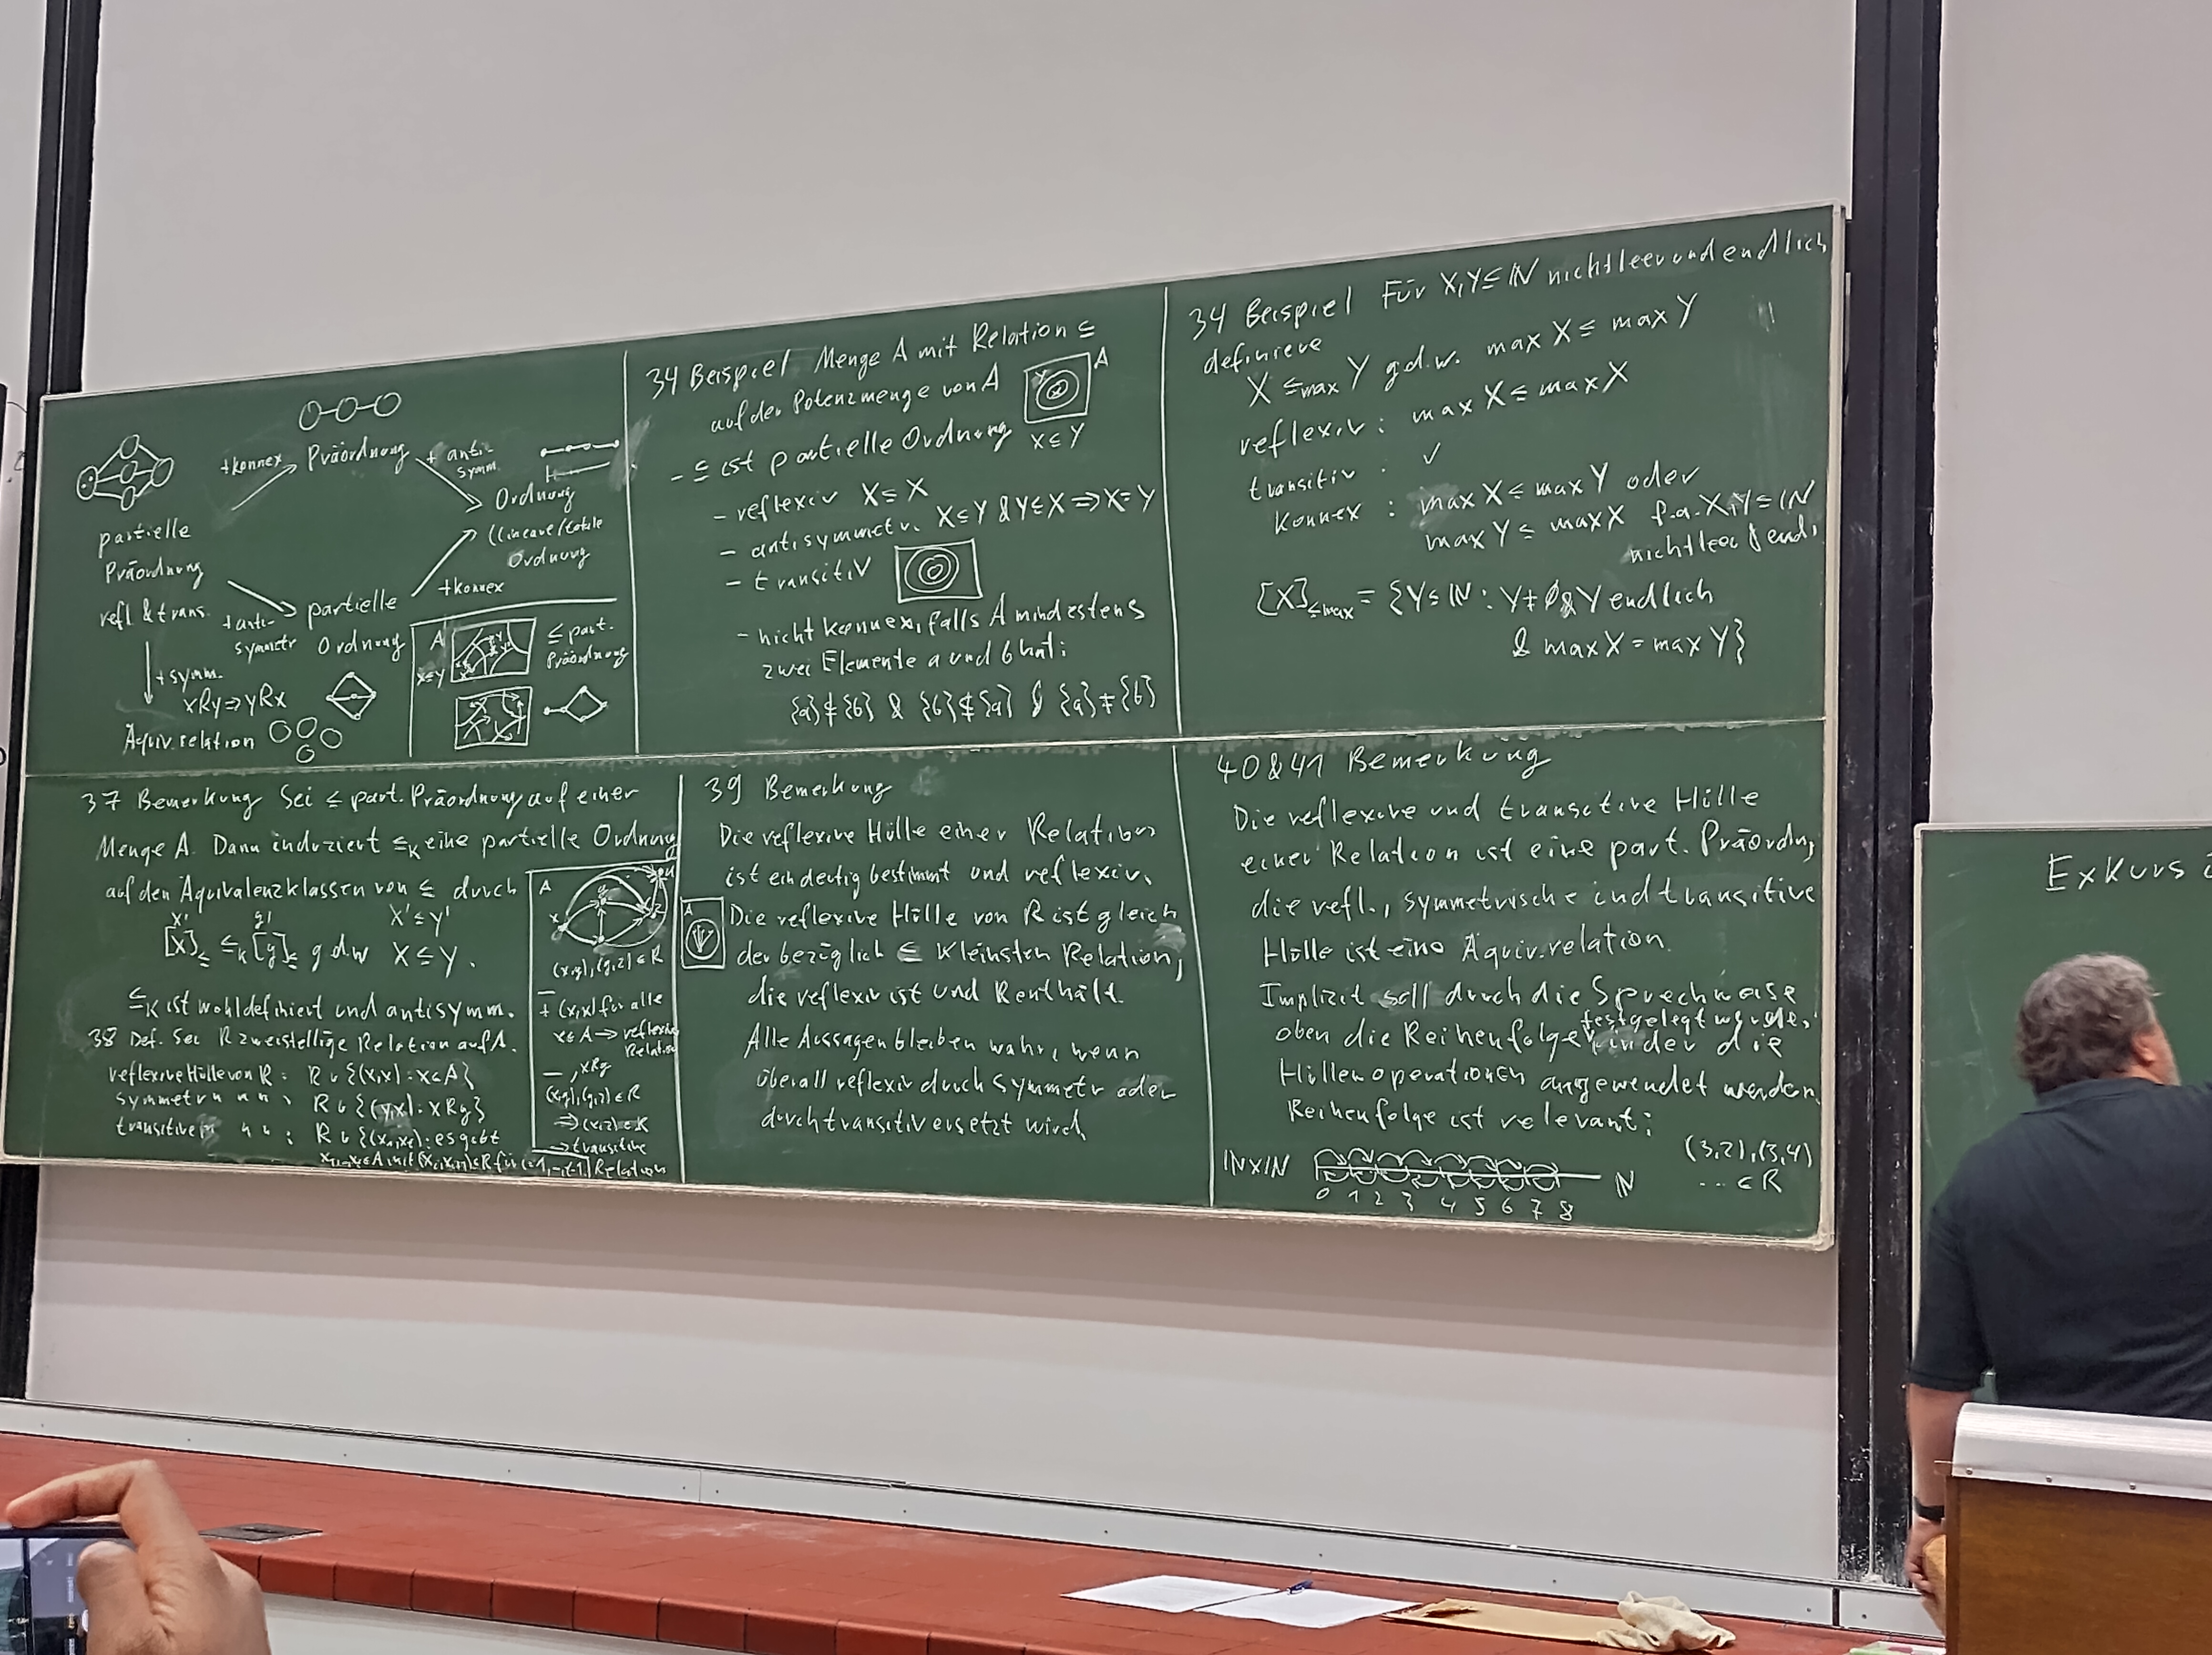 partielle
Präordnung
refl. & trans.
+konnex
Präordnung
+ anti-
symm.
Ordnung
(lineare/totale
Ordnung
+anti-
symmetr
partielle
Ordnung
+konnex
+symm.
xRy⇒yRx
Äquiv.relation
A
x≤y
≤ part.
Präordnung
34 Beispiel Menge A mit Relation ⊆
auf der Potenzmenge von A
A
X ⊆ Y
- ⊆ ist partielle Ordnung
- reflexiv X ⊆ X
- antisymmetr. X⊆Y & Y⊆X ⇒ X=Y
- transitiv
- nicht konnex, falls A mindestens
zwei Elemente a und b hat:
{a}⊈{b} & {b}⊈{a} & {a}≠{b}
34 Beispiel Für X,Y⊆ℕ nichtleer und endlich
definiere
X ≤max Y gdw. max X ≤ max Y
reflexiv: max X ≤ max X
transitiv: ✓
konnex: max X ≤ max Y oder
max Y ≤ max X f.a. X,Y ⊆ ℕ
nichtleer & endl.
[X]≤max = {Y⊆ℕ : Y≠∅ & Y endlich
& max X = max Y}
37 Bemerkung Sei ≤ part. Präordnung auf einer
Menge A. Dann induziert ≤K eine partielle Ordnung
auf den Äquivalenzklassen von ≤ durch
x' y' x'≤y'
[x]≤ ≤K [y]≤ gdw x ≤ y.
≤K ist wohldefiniert und antisymm.
38 Def. Sei R zweistellige Relation auf A.
reflexive Hülle von R: R ∪ {(x,x) : x∈A}
symmetr. " " : R ∪ {(y,x) : xRy}
transitive " " : R ∪ {(x₁,xₜ) : es gibt
A
(x,y),(y,z) ∈ R
+ (x,x) für alle
x∈A → reflexive
Relation
—, xRy
(x,y),(y,z)∈R
⇒(x,z)∈R
→ transitive
Relation
39 Bemerkung
Die reflexive Hülle einer Relation
ist eindeutig bestimmt und reflexiv.
Die reflexive Hülle von R ist gleich
der bezüglich ⊆ kleinsten Relation,
die reflexiv ist und R enthält.
Alle Aussagen bleiben wahr, wenn
überall reflexiv durch symmetr oder
durch transitiv ersetzt wird.
A
40&41 Bemerkung
Die reflexive und transitive Hülle
einer Relation ist eine part. Präordng
die refl., symmetrische und transitive
Hülle ist eine Äquiv.relation.
Implizit soll durch die Sprechweise
oben die Reihenfolge festgelegt werden, in der die
Hüllenoperationen angewendet werden.
Reihenfolge ist relevant:
ℕ×ℕ
0 1 2 3 4 5 6 7 8
ℕ
(3,2),(3,4)
... ∈ R
Exkurs